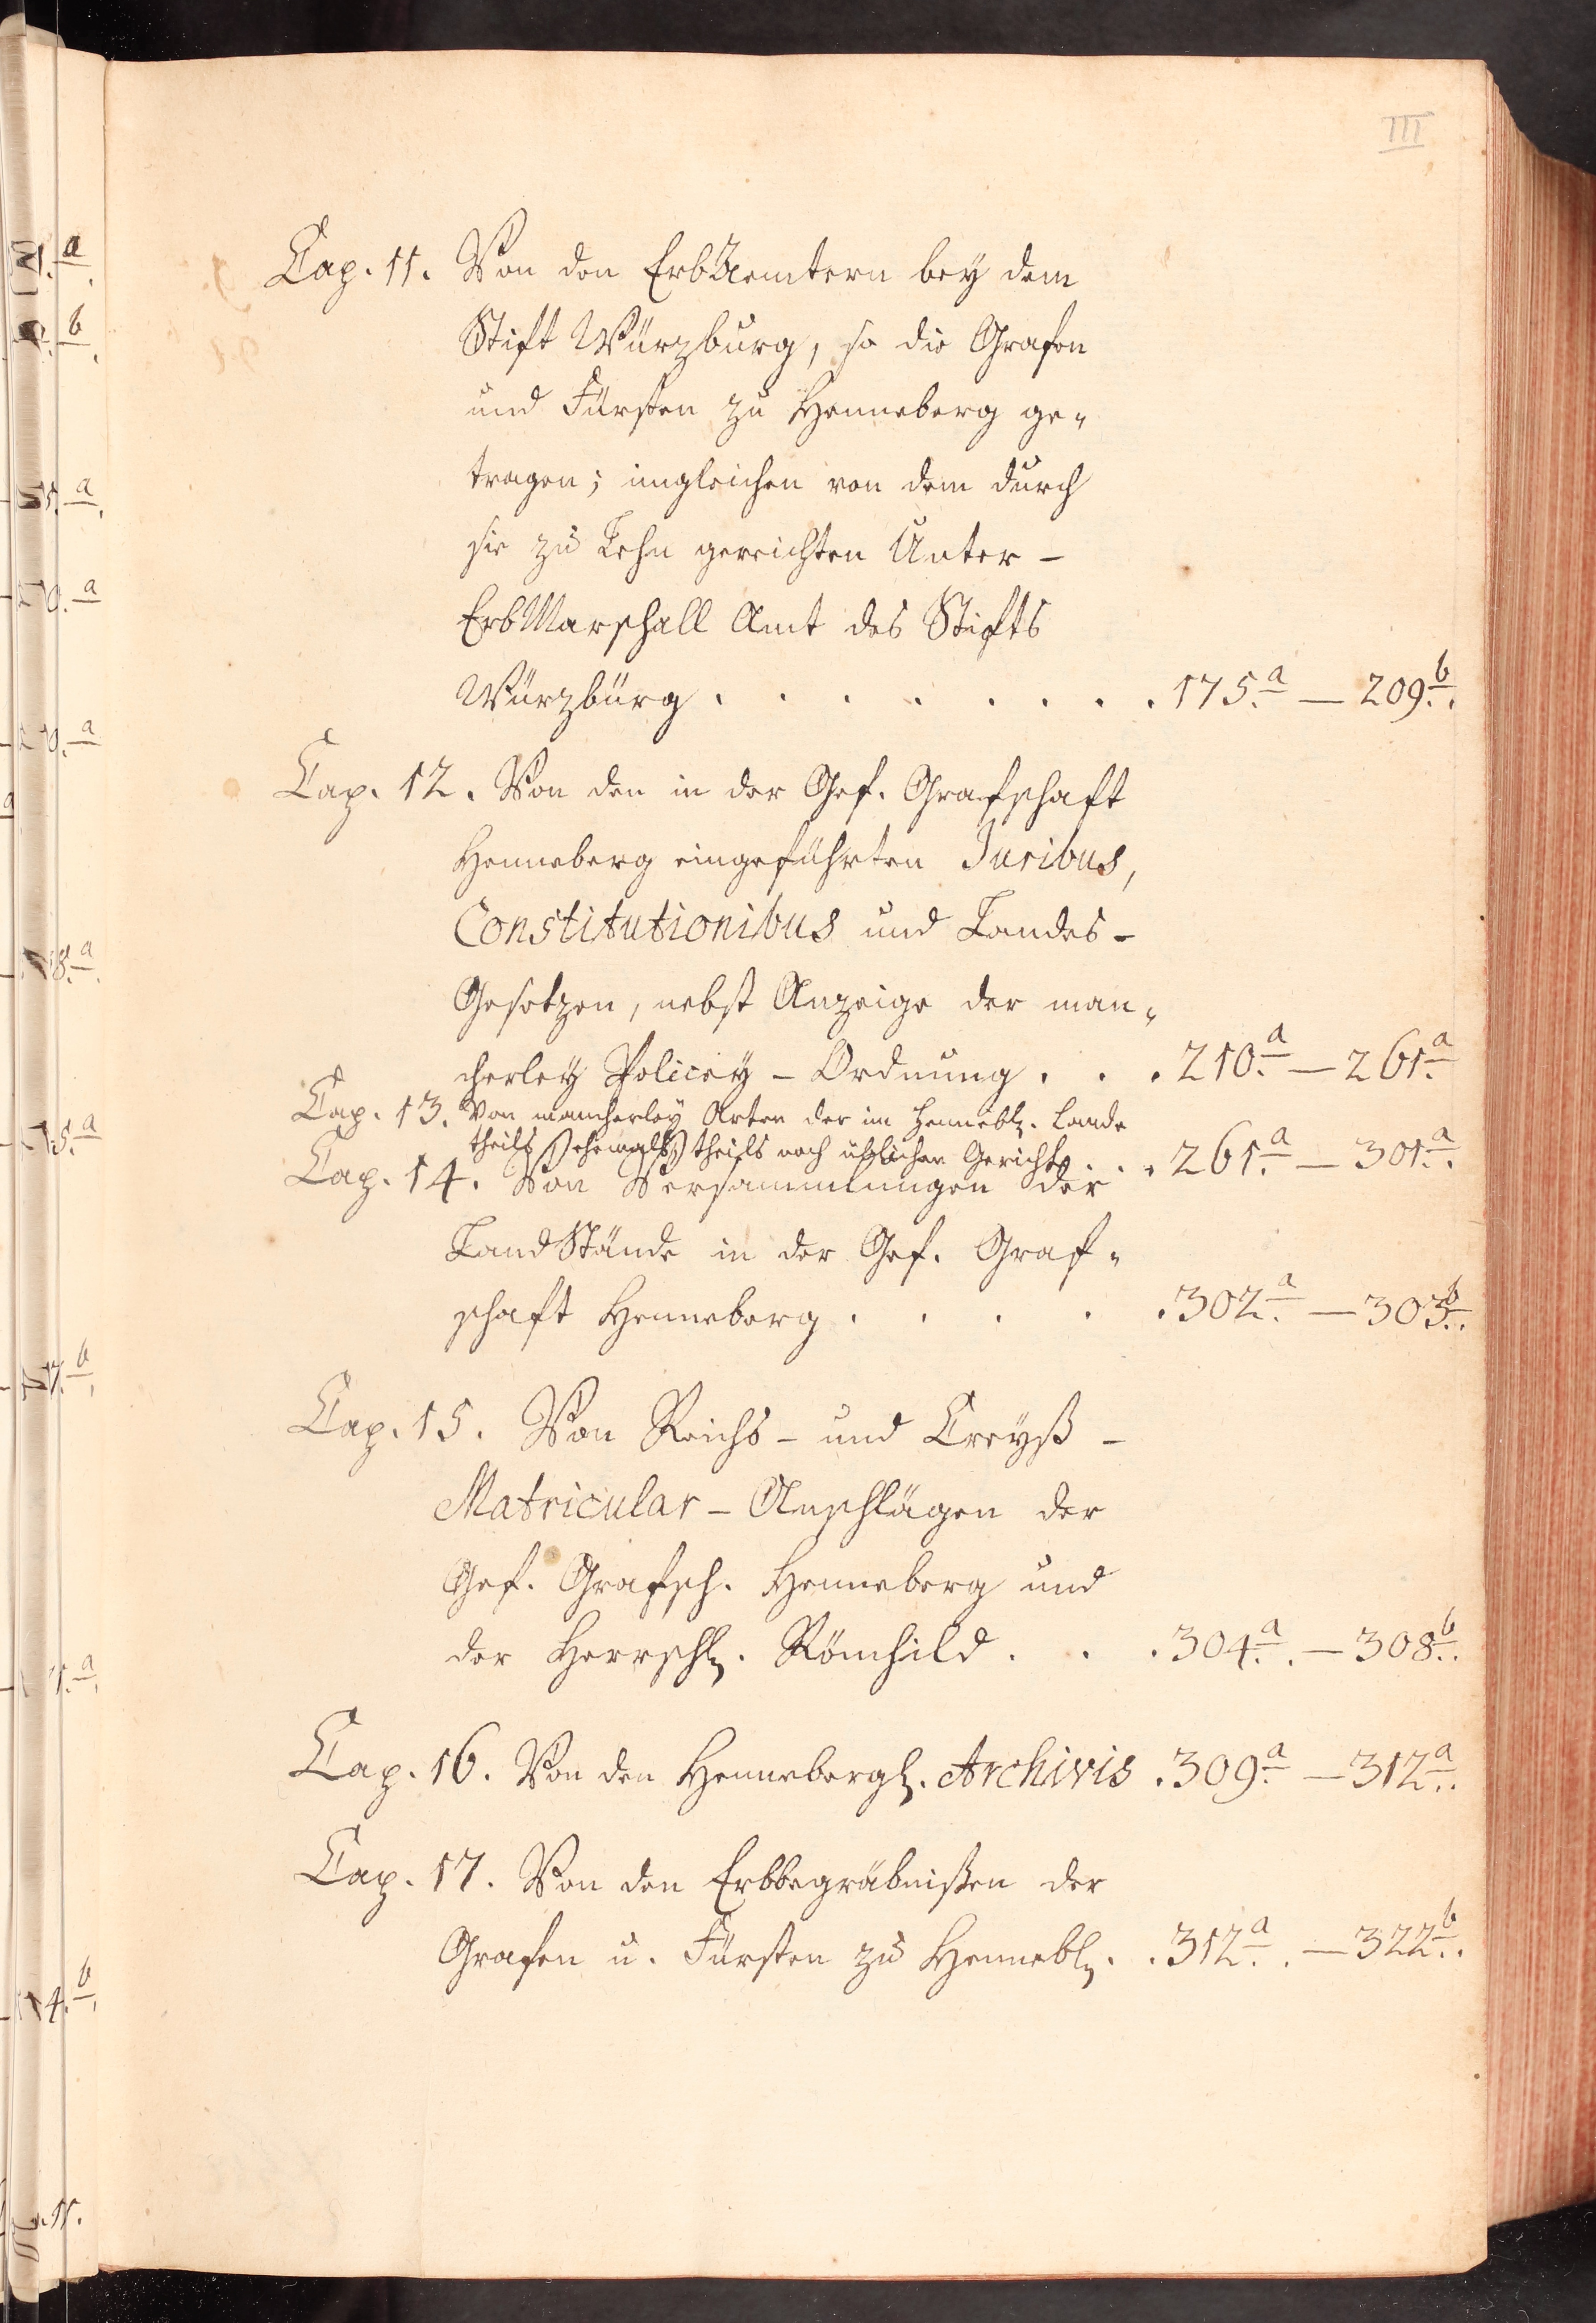 III
Cap. 11. Von den ErbAemtern bey dem
Stift Würzburg, so die Grafen
und Fürsten zu Henneberg ge-
tragen; imgleichen von dem durch
sie zu Lehn gereichten Unter-
ErbMarschall Amt des Stifts
Würzburg . . . . . . . . 175.a — 209.b.
Cap. 12. Von den in der Gef. Grafschaft
Henneberg eingeführten Juribus,
Constitutionibus und Landes-
Gesetzen, nebst Anzeige der man-
cherley Policey-Ordnung . . . 210.a — 261.a
Cap. 13. Von mancherley Arten der im Hennebl. Lande
theils ehemals, theils noch üblichen Gerichte . . . 261.a — 301.a.
Cap. 14. Von Versammlungen der
LandStände in der Gef. Graf-
schaft Henneberg . . . . . 302.a — 303.b.
Cap. 15. Von Reichs- und Creyß-
Matricular-Anschlägen der
Gef. Grafsch. Henneberg und
der Herrschl. Römhild . . . 304.a. — 308.b.
Cap. 16. Von den Hennebergl. Archivis . 309.a — 312.a.
Cap. 17. Von den Erbbegräbnißen der
Grafen u. Fürsten zu Hennebl. . 312.a. — 322.b.